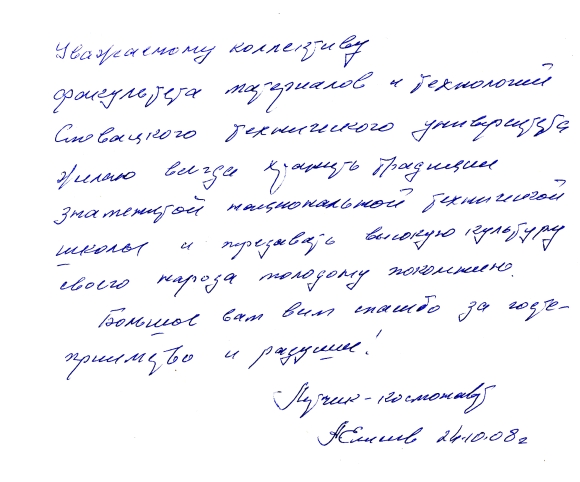 Уважаемому коллективу
факультета материалов и технологий
Словацкого технического университета
желаю всегда хранить традиции
знаменитой национальной технической
школы и передавать высокую культуру
своего народа молодому поколению.
Большое вам всем спасибо за госте-
приимство и радушие!
Летчик-космонавт
АЕлисеев 24.10.08г